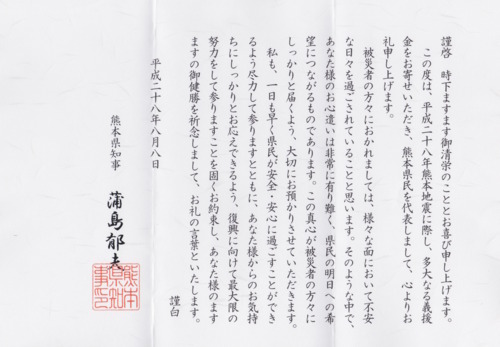 謹啓　時下ますます御清栄のこととお喜び申し上げます。
この度は、平成二十八年熊本地震に際し、多大なる義援
金をお寄せいただき、熊本県民を代表しまして、心よりお
礼申し上げます。
被災者の方々におかれましては、様々な面において不安
な日々を過ごされていることと思います。そのような中で、
あなた様のお心遣いは非常に有り難く、県民の明日への希
望につながるものであります。この真心が被災者の方々に
しっかりと届くよう、大切にお預かりさせていただきます。
私も、一日も早く県民が安全・安心に過ごすことができ
るよう尽力して参りますとともに、あなた様からのお気持
ちにしっかりとお応えできるよう、復興に向けて最大限の
努力をして参りますことを固くお約束し、あなた様のます
ますの御健勝を祈念しまして、お礼の言葉といたします。
謹白
平成二十八年八月八日
熊本県知事　蒲島郁夫
熊本県知事印